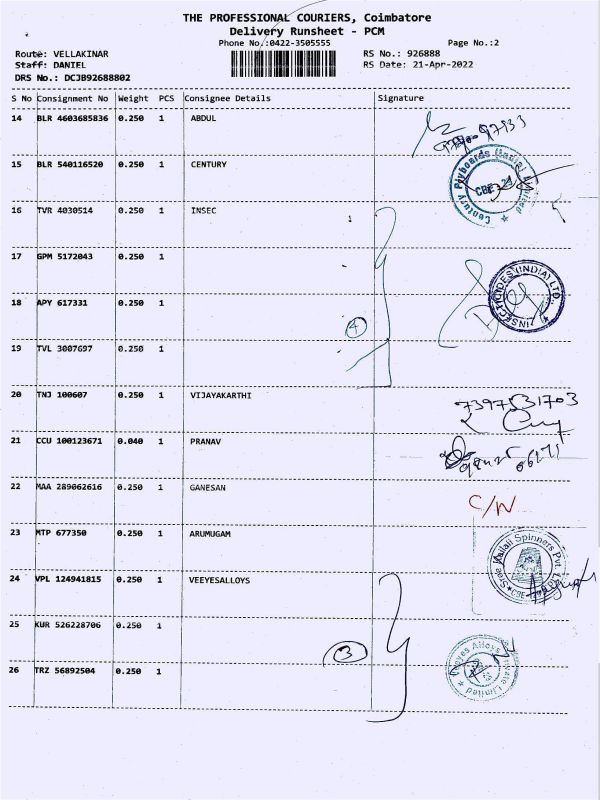 THE PROFESSIONAL COURIERS, Coimbatore
Delivery Runsheet - PCM
Phone No.:0422-3505555 Page No.:2
Route: VELLAKINAR RS No.: 926888
Staff: DANIEL RS Date: 21-Apr-2022
DRS No.: DCJB92688802
S No Consignment No Weight PCS Consignee Details Signature
14 BLR 4603685836 0.250 1 ABDUL
15 BLR 540116520 0.250 1 CENTURY
Century Plyboards (India) Limited
16 TVR 4030514 0.250 1 INSEC
17 GPM 5172043 0.250 1
INSECTICIDES (INDIA) LTD.
18 APY 617331 0.250 1
4
19 TVL 3007697 0.250 1
20 TNJ 100607 0.250 1 VIJAYAKARTHI
7397531703
21 CCU 100123671 0.040 1 PRANAV
22 MAA 289062616 0.250 1 GANESAN
C/N
23 MTP 677350 0.250 1 ARUMUGAM
Sree Kailaji Spinners Pvt.
24 VPL 124941815 0.250 1 VEEYESALLOYS
25 KUR 526228706 0.250 1
3
Alloys Private Limited
26 TRZ 56892504 0.250 1